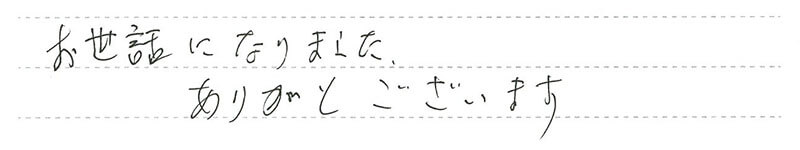 お世話になりました.
ありがとございます